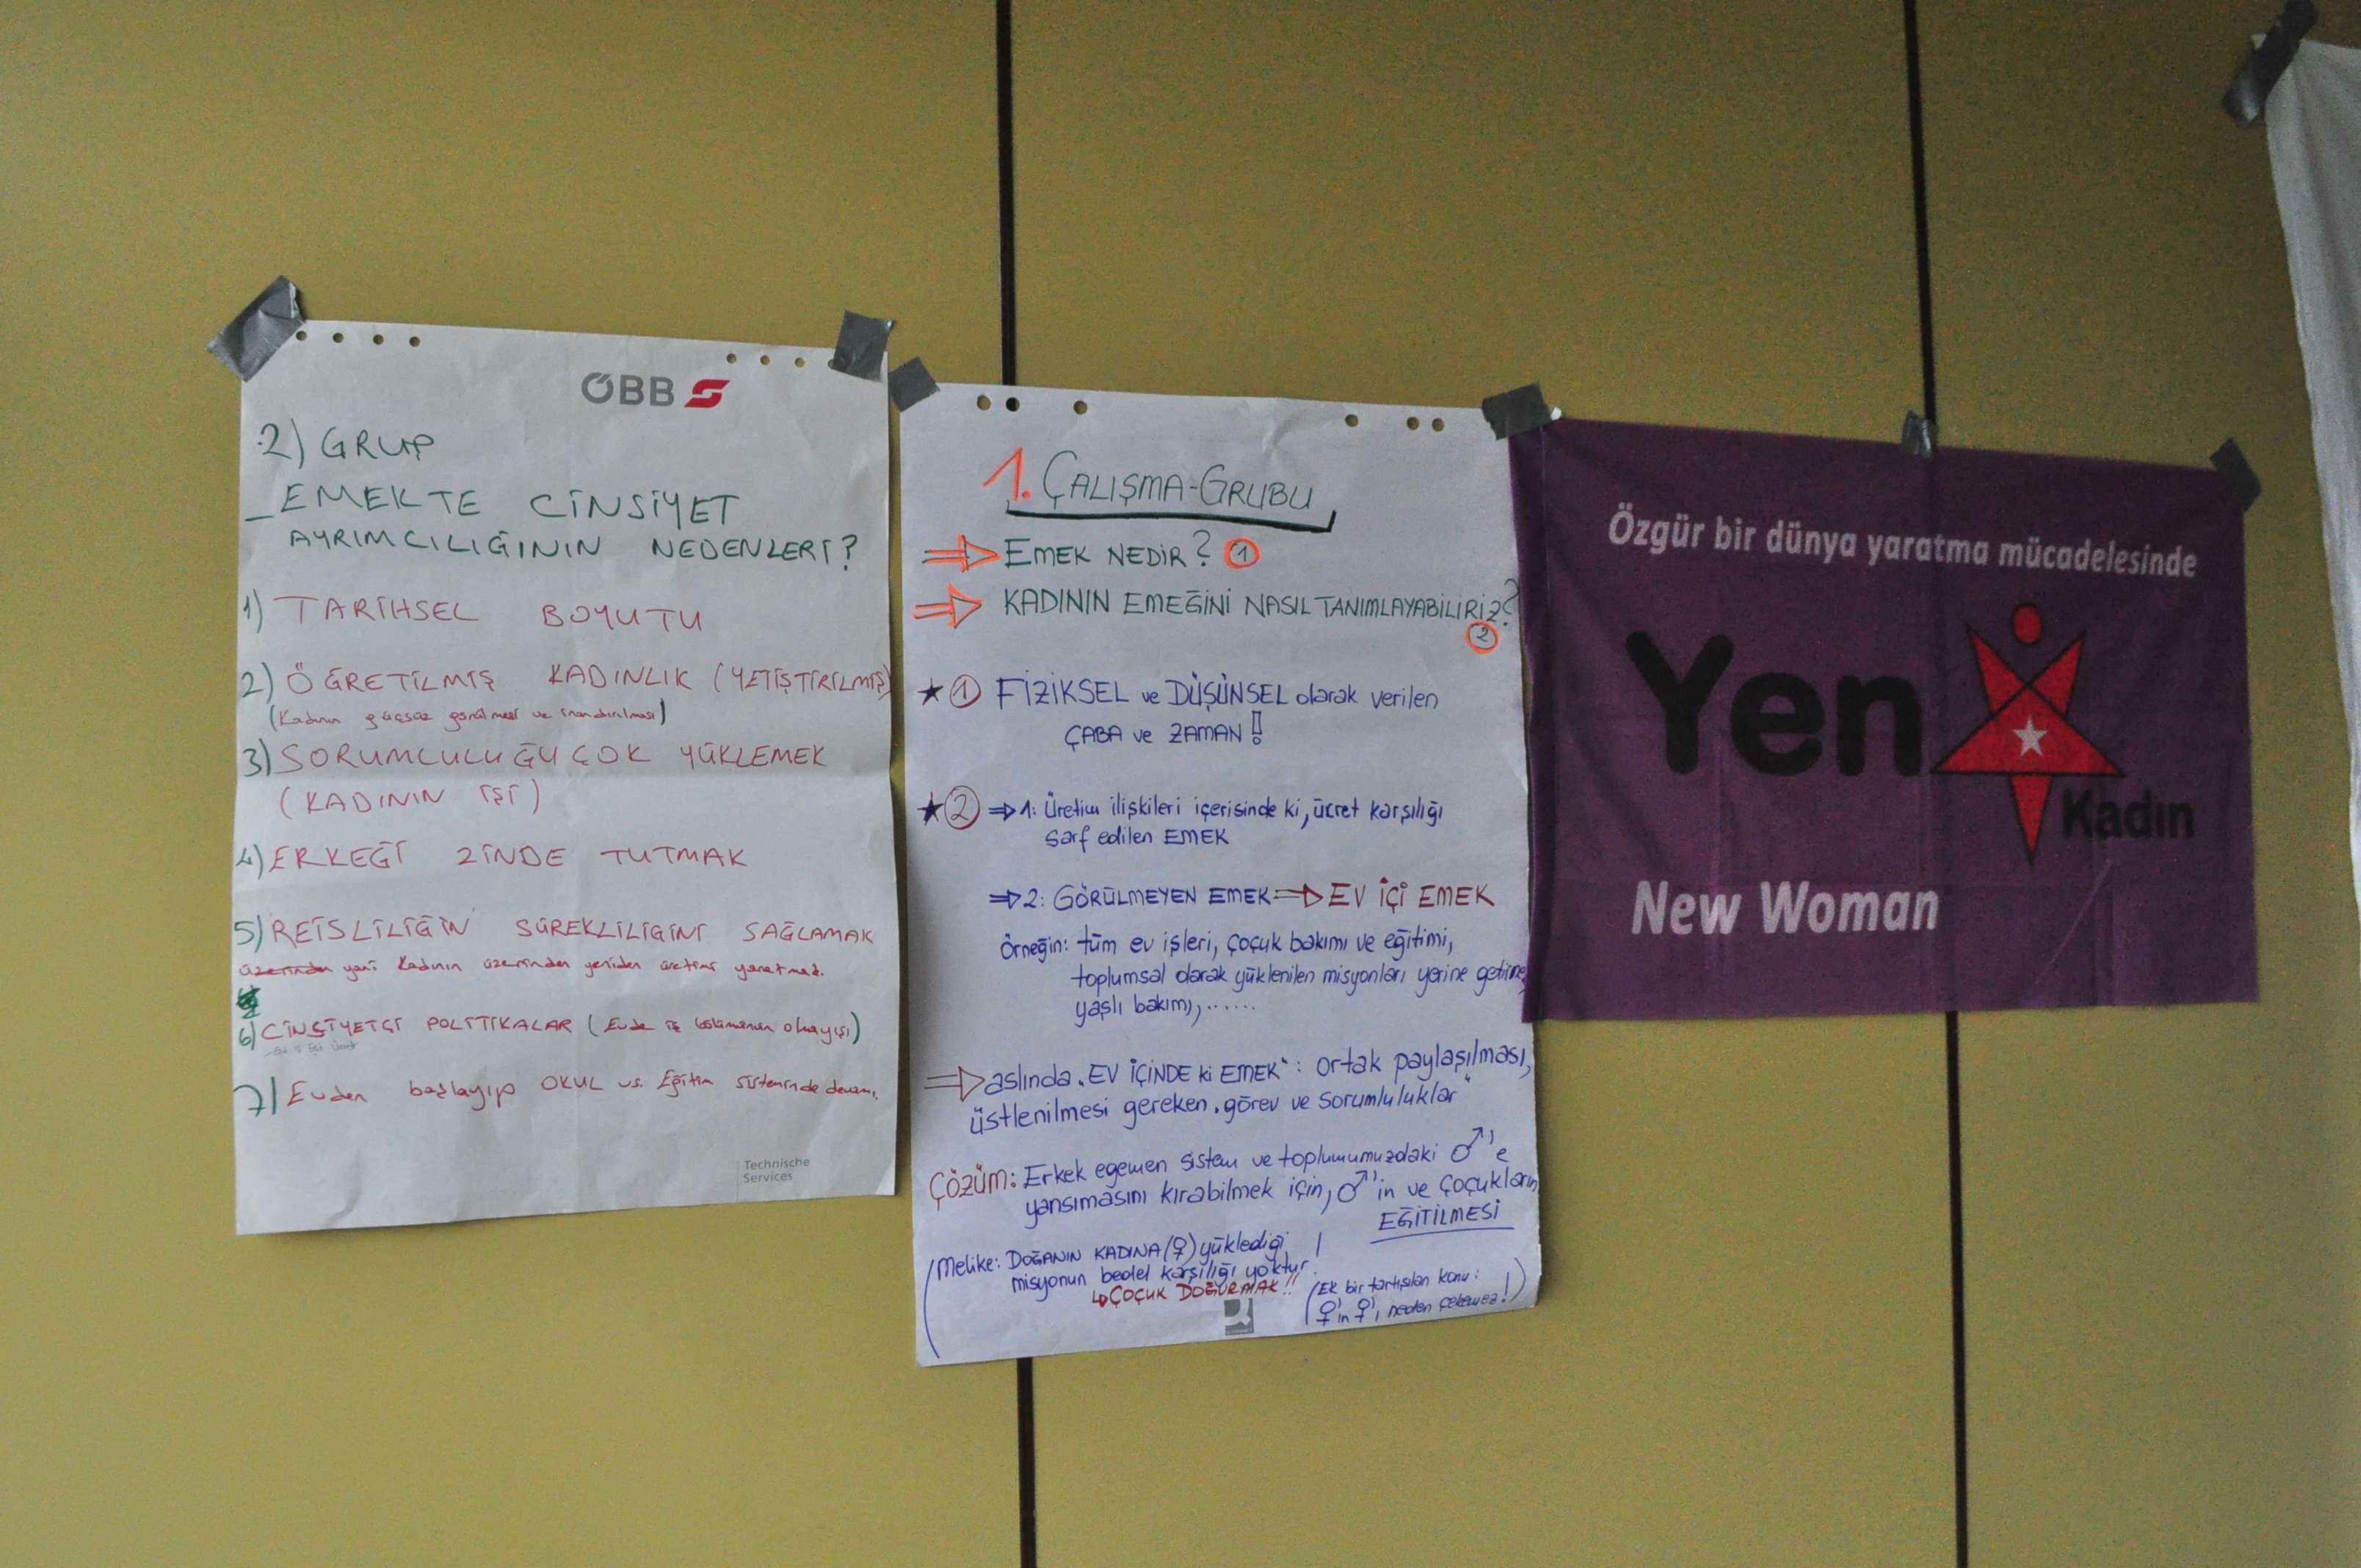 ÖBB
2) GRUP
_EMEKTE CİNSİYET
AYRIMCILIĞININ NEDENLERİ?
1) TARİHSEL BOYUTU
2) ÖĞRETİLMİŞ KADINLIK (YETİŞTİRİLMİŞ)
(Kadının güçsüz görülmesi ve inandırılması)
3) SORUMLULUĞU ÇOK YÜKLEMEK
(KADININ İŞİ)
4) ERKEĞİ ZİNDE TUTMAK
5) REİSLİLİĞİN SÜREKLİLİĞİNİ SAĞLAMAK
üzerinden yani Kadının üzerinden yeniden üretimi yaratmad.
6) CİNSİYETÇİ POLİTİKALAR (Evde iş bölümünün olmayışı)
7) Evden başlayıp OKUL vs. Eğitim sisteminde devamı.
Technische
Services
1. ÇALIŞMA-GRUBU
⇒ EMEK NEDİR? 1
⇒ KADININ EMEĞİNİ NASIL TANIMLAYABİLİRİZ?
2
★ 1 FİZİKSEL ve DÜŞÜNSEL olarak verilen
ÇABA ve ZAMAN!
★ 2 ⇒ 1: Üretim ilişkileri içerisinde ki, ücret karşılığı
sarf edilen EMEK
⇒ 2: GÖRÜLMEYEN EMEK ⇒ EV İÇİ EMEK
Örneğin: tüm ev işleri, çoçuk bakımı ve eğitimi,
toplumsal olarak yüklenilen misyonları yerine getirme,
yaşlı bakımı,......
⇒ aslında „EV İÇİNDE ki EMEK“: ortak paylaşılması,
üstlenilmesi gereken „görev ve sorumluluklar“
ÇÖZÜM: Erkek egemen sistem ve toplumumuzdaki ♂'e
yansımasını kırabilmek için, ♂'in ve çoçukların
EĞİTİLMESİ
(Melike: DOĞANIN KADINA (♀) yüklediği
misyonun bedel karşılığı yoktur!
↳ ÇOÇUK DOĞURMAK!!
(Ek bir tartışılan konu:
♀'in ♀'i neden çekemez!)
Özgür bir dünya yaratma mücadelesinde
Yen
Kadın
New Woman